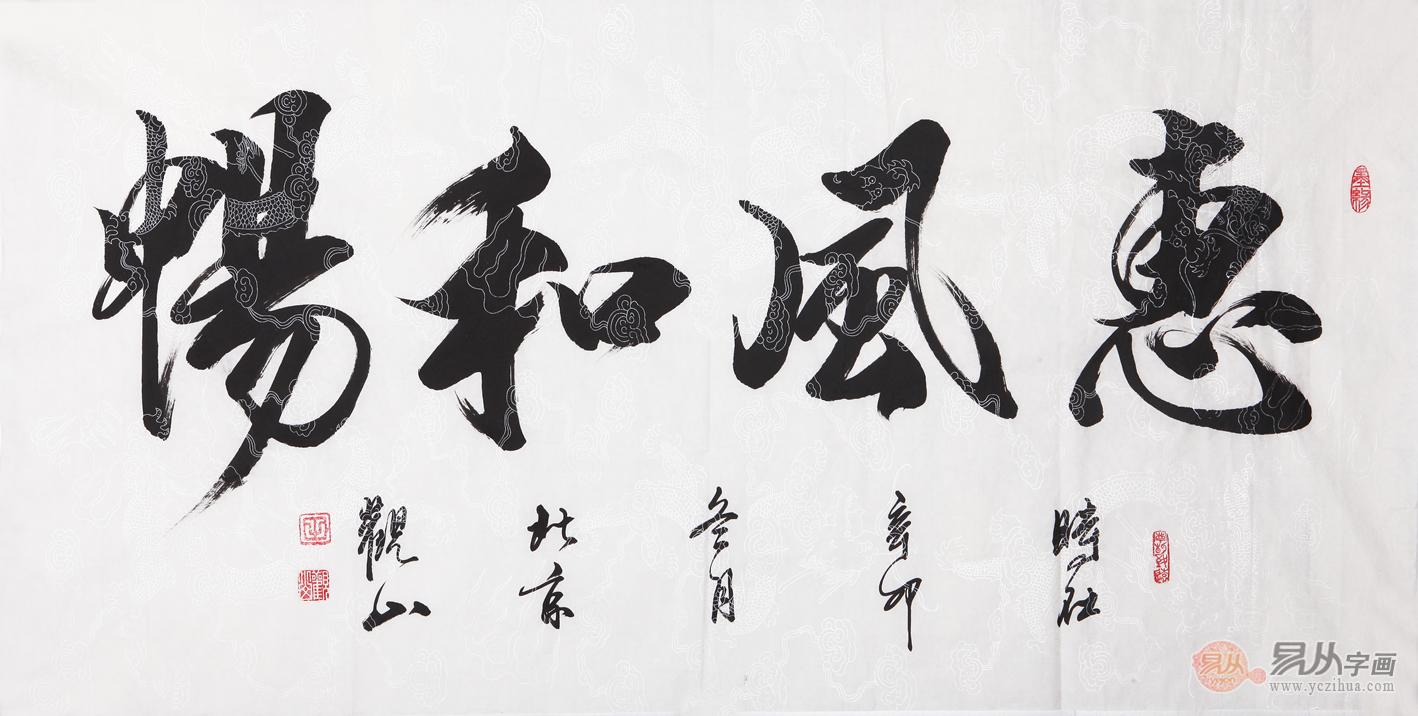 惠風和暢
時在辛卯冬月北京觀山
墨緣
易从字画
www.yczihua.com